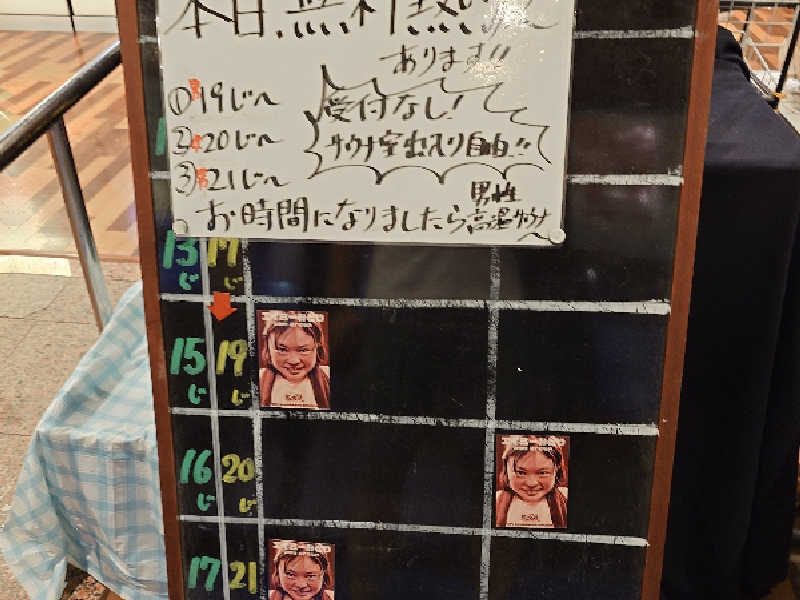 本日、無料熱波
あります!!
①男19じ〜
②女20じ〜
③男21じ〜
受付なし!
サウナ室出入り自由!!
お時間になりましたら男性高温サウナ
へ
13じ 17じ
15じ 19じ
16じ 20じ
17 21